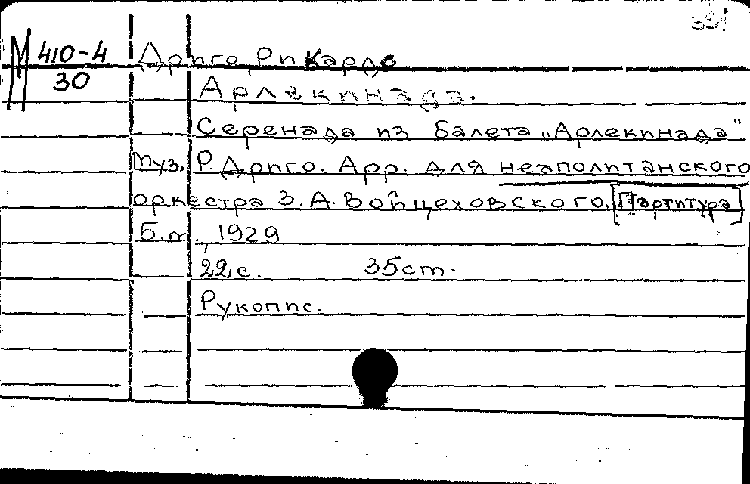 М 410-4 Дриго, Рикардо
30
Арлекинада.
Серенада из балета „Арлекинада"
Муз. Р Дриго. Арр. для неаполитанского
оркестра З. А. Войцеховского. [Партитура]
Б.м., 1929
22 с. 35 ст.
Рукопис.